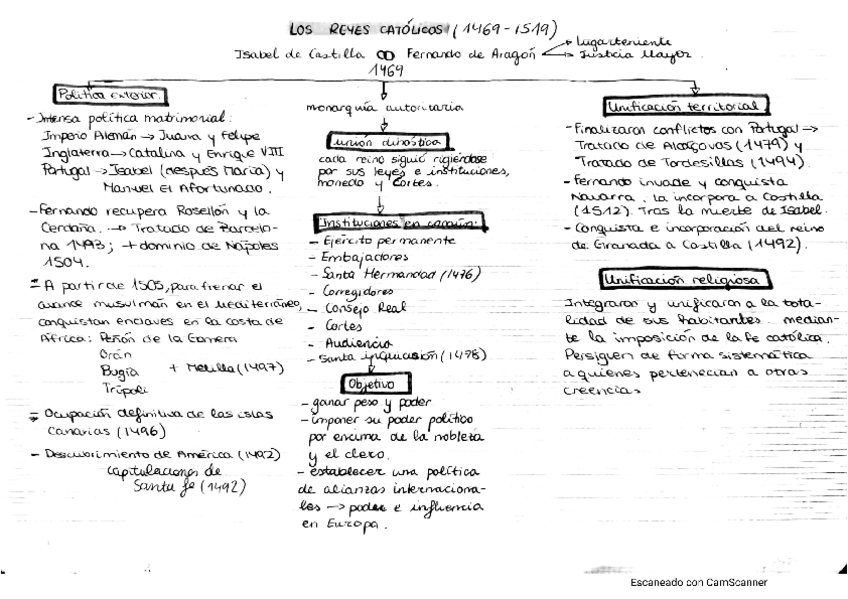 LOS REYES CATÓLICOS (1469-1519)
Isabel de Castilla ∞ Fernando de Aragón → Lugarteniente
→ Justicia Mayor.
1469
Política exterior.
- Intensa política matrimonial:
Imperio Alemán → Juana y Felipe
Inglaterra → Catalina y Enrique VIII
Portugal → Isabel (después María) y
Manuel El Afortunado.
- Fernando recupera Rosellón y la
Cerdaña. → Tratado de Barcelo-
na 1493; + dominio de Nápoles
1504.
- A partir de 1505, para frenar el
avance musulmán en el Mediterráneo,
conquistan enclaves en la costa de
África: Peñón de la Gomera
Orán
Bugía + Melilla (1497)
Trípoli
- Ocupación definitiva de las islas
Canarias (1496)
- Descubrimiento de América (1492)
Capitulaciones de
Santa fe (1492)
monarquía autoritaria
unión dinástica
cada reino siguió rigiéndose
por sus leyes e instituciones,
moneda y Cortes.
Instituciones en común
- Ejército permanente
- Embajadores
- Santa Hermandad (1476)
- Corregidores
- Consejo Real
- Cortes
- Audiencia
- Santa inquisición (1478)
Objetivo
- ganar peso y poder
- imponer su poder político
por encima de la nobleza
y el clero.
- establecer una política
de alianzas internaciona-
les → poder e influencia
en Europa.
Unificación territorial
- Finalizaron conflictos con Portugal →
Tratado de Alcaçovas (1479) y
Tratado de Tordesillas (1494).
- Fernando invade y conquista
Navarra. La incorpora a Castilla
(1512). Tras la muerte de Isabel.
- Conquista e incorporación del reino
de Granada a Castilla (1492).
Unificación religiosa
Integraron y unificaron a la tota-
lidad de sus habitantes median-
te la imposición de la fe católica.
Persiguen de forma sistemática
a quienes pertenecían a otras
creencias
Escaneado con CamScanner